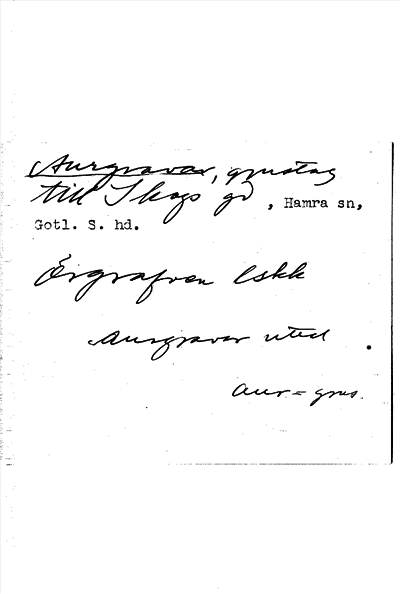 Aurgravar, grustag
till Skogs gd, Hamra sn,
Gotl. S. hd.
Örgrafven lskk
Aurgravar uttal
aur = grus.